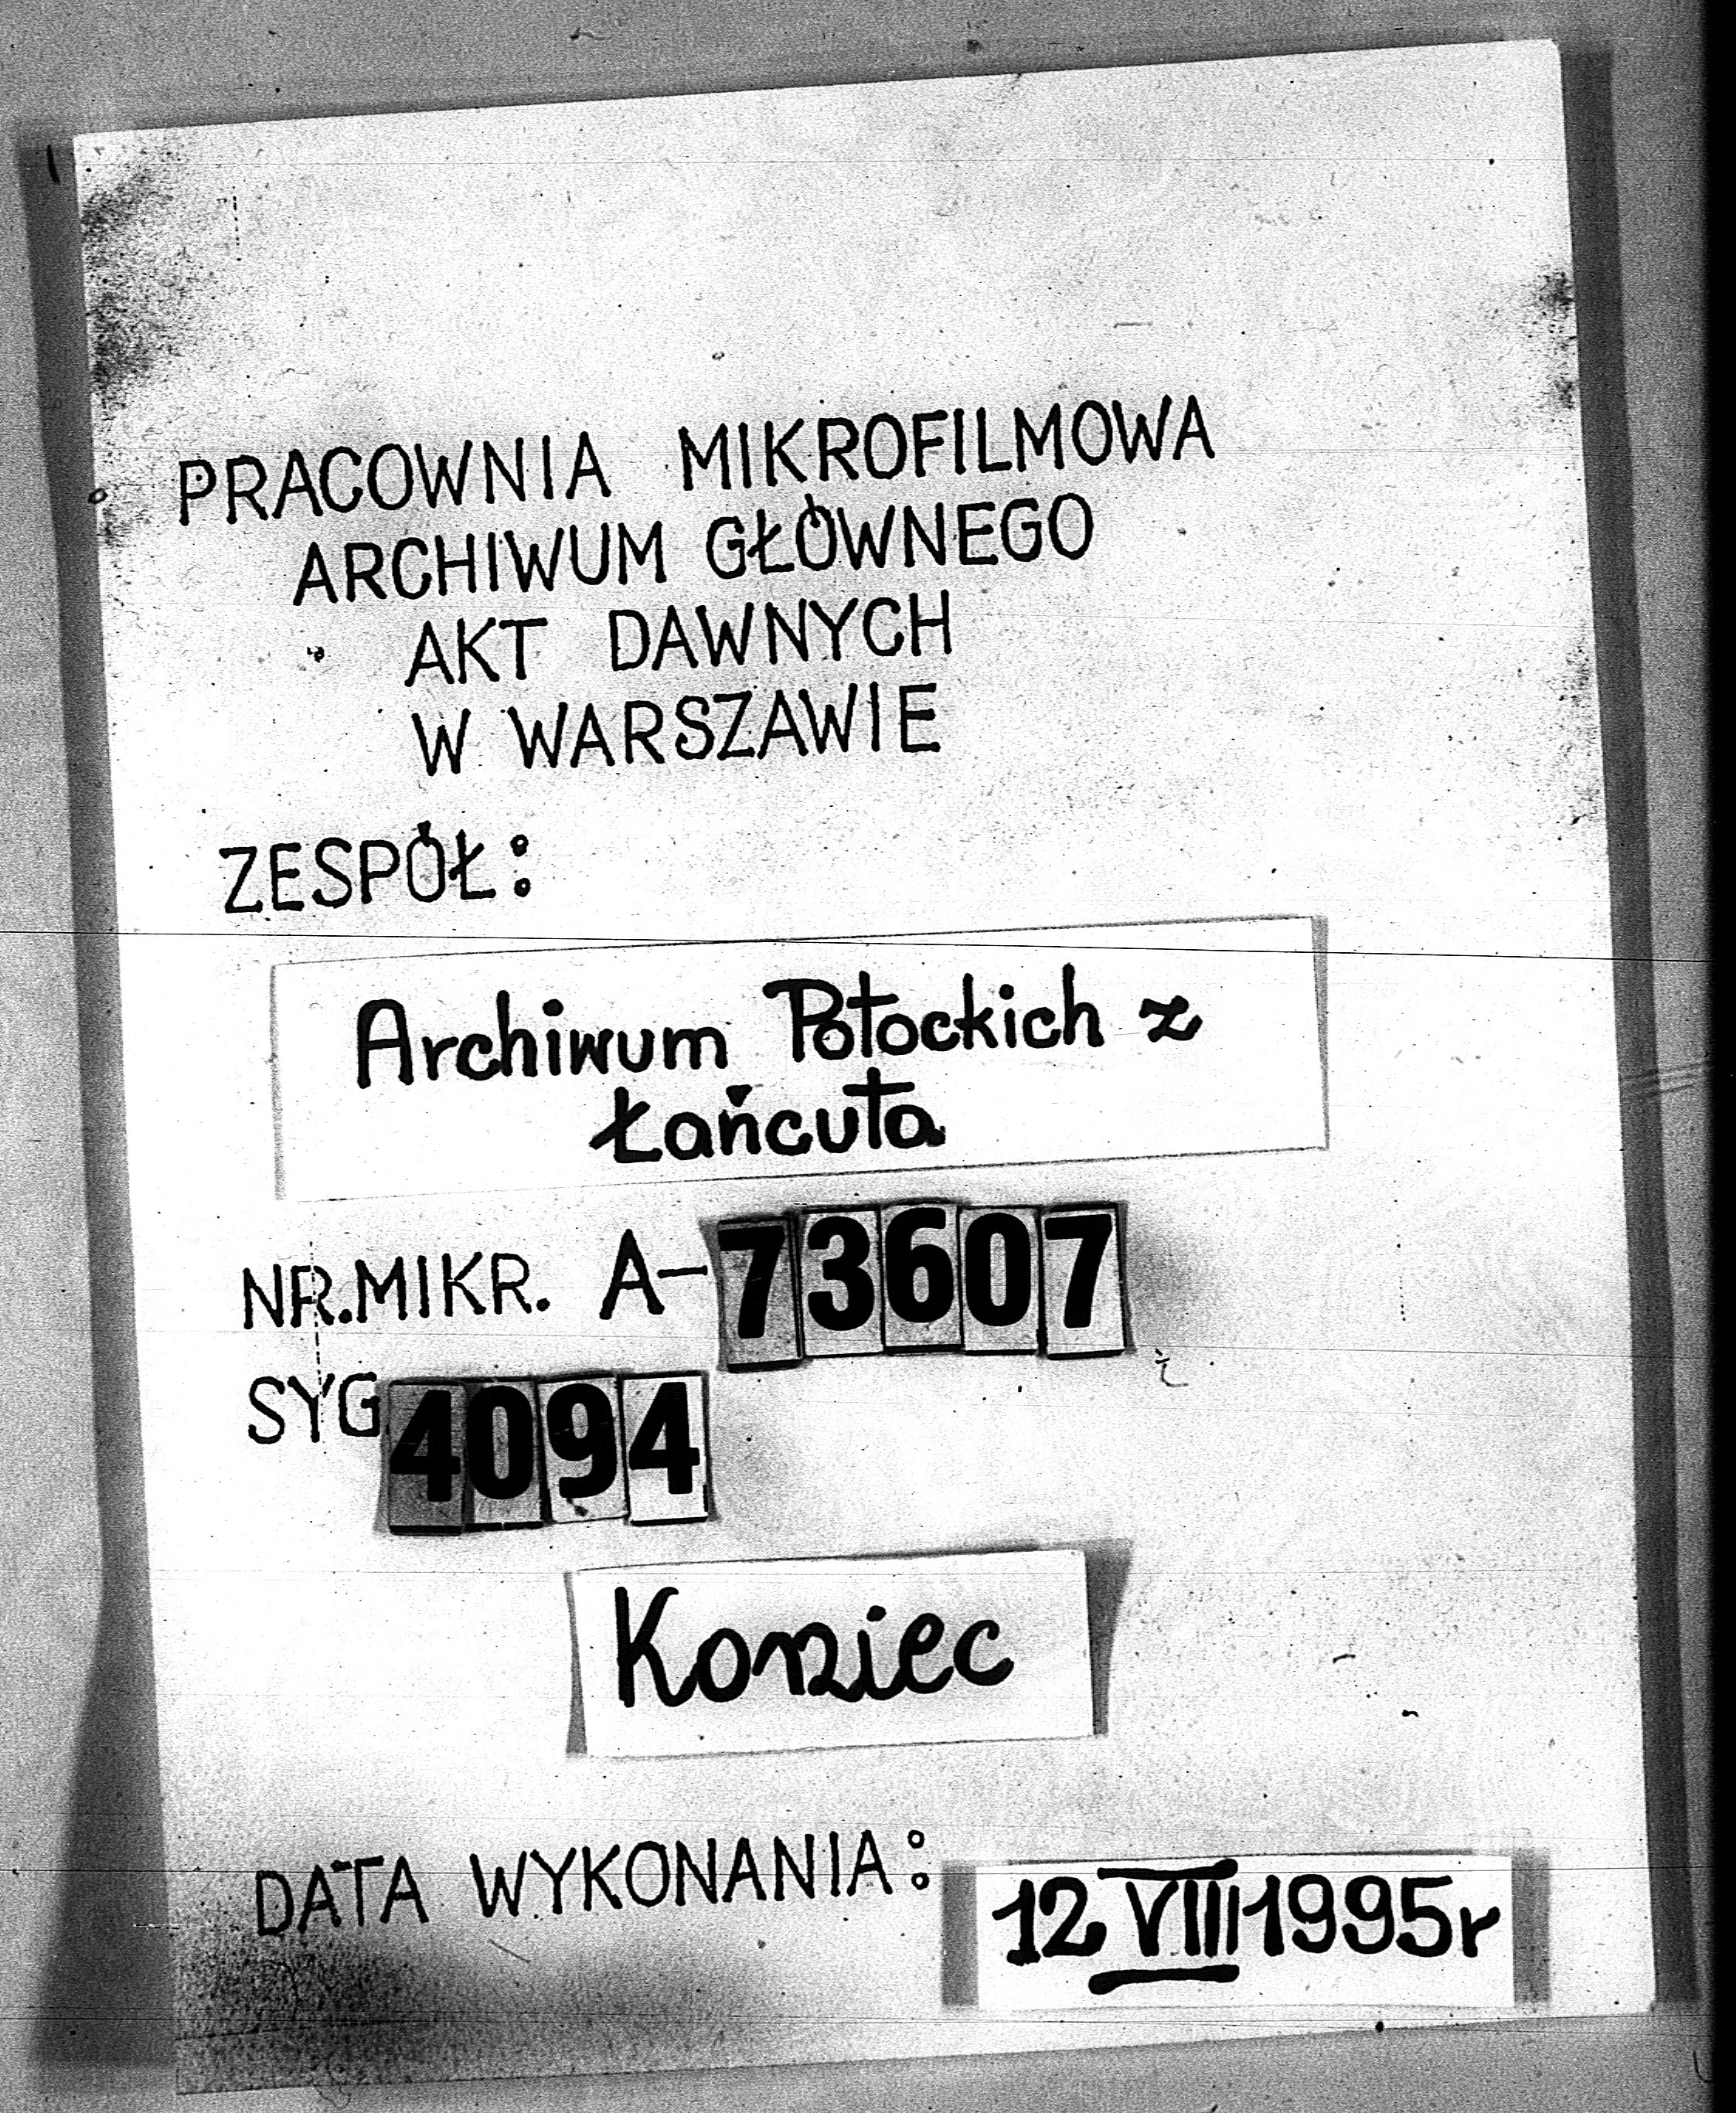 PRACOWNIA MIKROFILMOWA
ARCHIWUM GŁÓWNEGO
AKT DAWNYCH
W WARSZAWIE
ZESPÓŁ:
Archiwum Potockich z
Łańcuta
NR.MIKR. A-73607
SYG 4094
Koniec
DATA WYKONANIA: 12 VIII 1995r